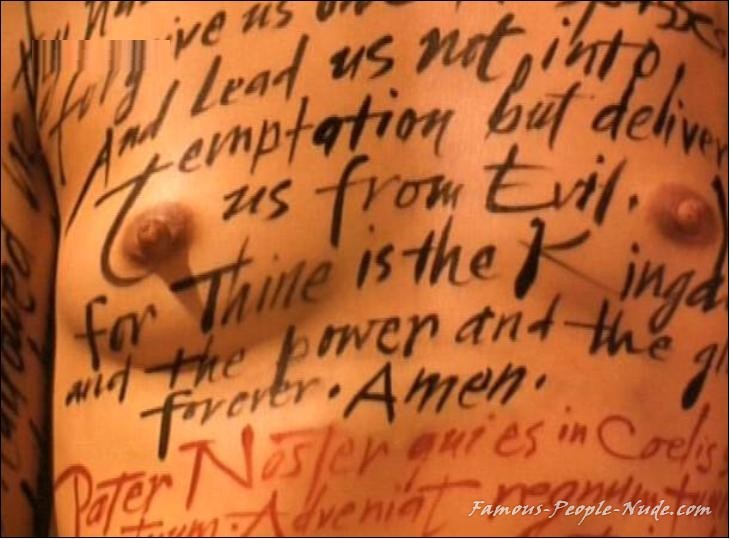 forgive us our trespasses
And Lead us not into
Temptation but deliver
us from Evil.
for Thine is the Kingd
and the power and the gl
forever. Amen.
Pater Noster qui es in Coelis
tuum. Adveniat regnum tuum
Famous-People-Nude.com